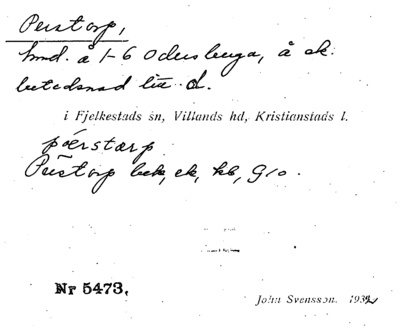 Perstorp,
hmd. å 1-6 Odersberga, å ek.
betecknad lit. d.
i Fjelkestads sn, Villands hd, Kristianstads l.
pǽrstarp
Perstorp bek, ek, kb, G10.
Nr 5473.
John Svensson. 1932